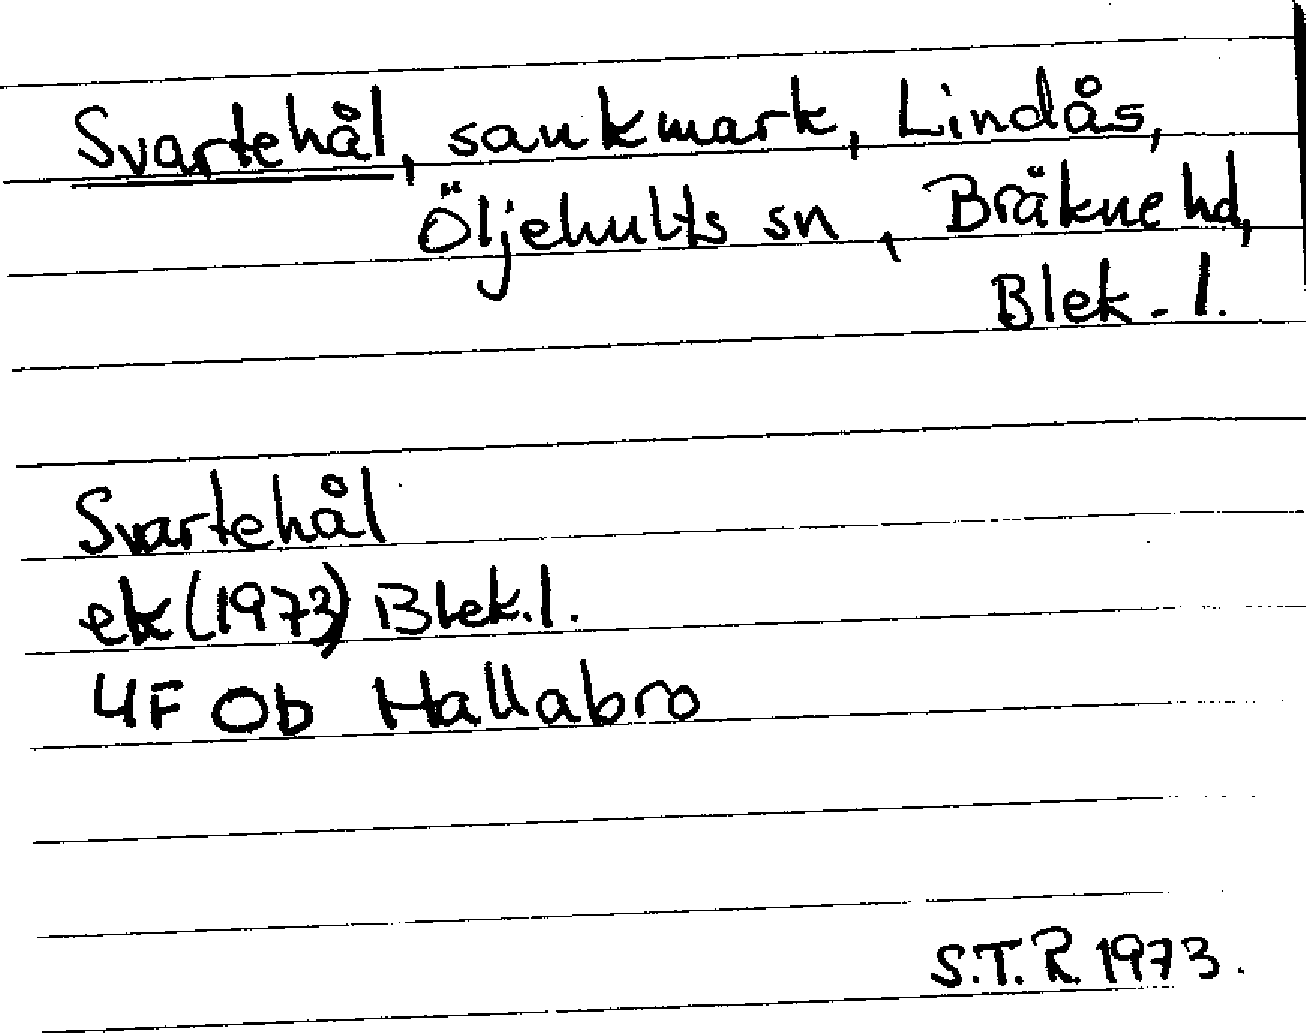 Svartehål, sankmark, Lindås,
Öljehults sn, Bräkne hd,
Blek. l.
Svartehål
ek (1973) Blek. l.
4F 0b Hallabro
S.T.R. 1973.